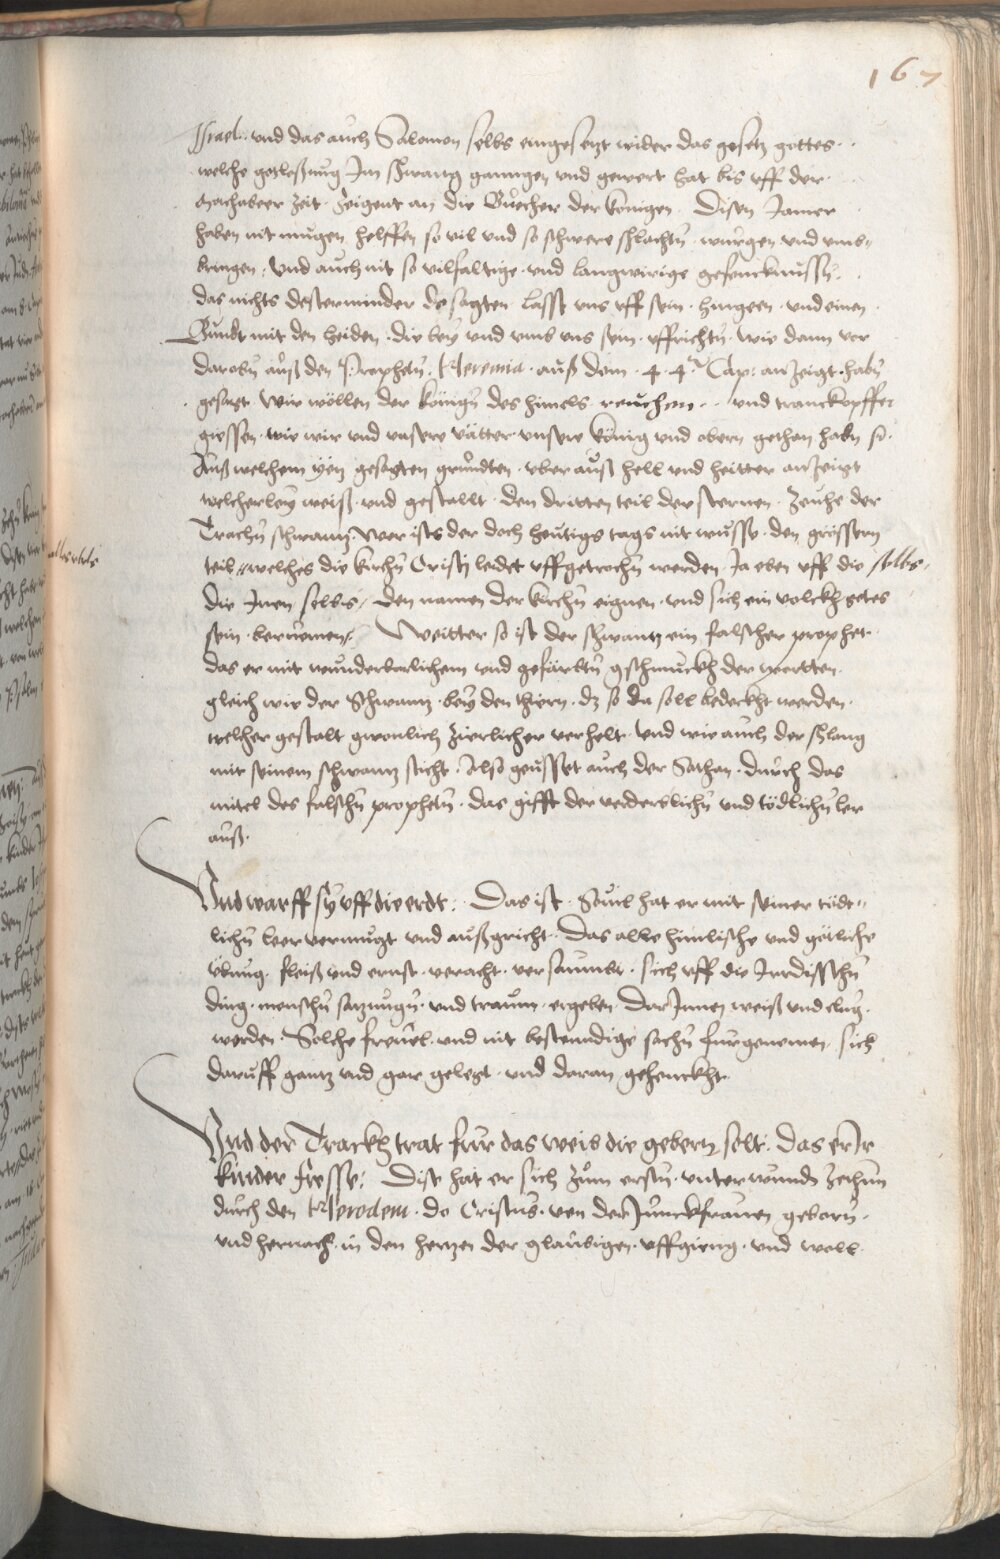 167
Israel. und das auch Salomon selbs eingesetzt wider das gesetz gottes.
welche gotloßung Im schwang ganngen und gewert hat bis uff der
Machabeer zeit. Zeigent an die Buecher der konigen. Disen Jamer
haben nit mugen helffen so vil und so schwere schlachtn. wurgen und umb-
bringen, und auch nit so vilfaltige und langwirige gefencknussn.
das nichts desterminder do sagten Lasst uns uff sein. hingeen. und einen
Bundt mit den heiden. die bey und umb uns sein. uffrichtn. Wie dann vor
daroben auß den Prophetn. Hieremia. auß dem .44. Cap: anzeigt. habn
gesagt. Wir wöllen der königin des himels reuchen. und tranckopffer
giessen. wie wir und unsere vätter unsere könig und obern gethan habn so.
Auß welchem gesagten grundten. uber auß hell und heitter anzeigt
welcherley weiß. und gestallt. den dritten teil der sternen. Zeuhe der
Trachn schwantz. Wer ists der doch heutigs tags nit wusse. den grössern
teil welches die kirchn Cristi leidet uffgetrochn werden. Ja eben uff die selbs
die Jnen selbs, den namen der kirchn eignen. und sich ein volckh gotes
sein. beruemen. Weitter so ist der schwantz ein falscher prophet.
das er mit wunderbarlichem und gefärbtn gschmuckh der wortten.
gleich wie der Schwantz. bey den thiern. dz so da soll bedeckht werden.
welcher gestalt gwonlich zierlicher verhelt. Und wie auch der schlang
mit seinem schwantz sticht. Also geusset auch der Sathan. durch das
mitel des falschn prophetn. das gifft der verderblichn und tödlichn ler
auß.
Und warff sy uff die erdt. Das ist. Souil hat er mit seiner tödt-
lichn leer vermugt und außgricht. Das alle himlische und götliche
ubung. fleiß und ernst. veracht. versaumbt. sich uff die Irrdisschn
ding. menschn satzungn. und traum. ergeben. Dar Innen weiß und clug.
werden. Solche freuel. und nit bestenndige sachn furgenomen. sich
daruff gantz und gar gelegt. und daran gehenckht.
Und der Trackh trat fur das weib die gebern solt. das er Ir
kinder fresse. Dise hat er sich zum ersten. unterwunden zethun
durch den Herodem. do Cristus. von der Junckfrauen geborn.
und hernach. in den hertzen der glaubigen. uffgieng. und woll.